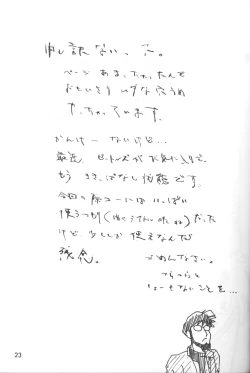 申し訳ない、、。
ページ あまっちゃったんで
おもいきり ムダな穴うめ
やっちゃってます。
かんけー ないけど‥
最近 ビートルズが お気に入りで、
もう ききっぱなし状態です。
今回の 原コーにはいっぱい
使うつもり( )だった
けど 少ししか 使えなんだ
残念。
ごめんなさい。
つらつらと
しょーもないことを…
23